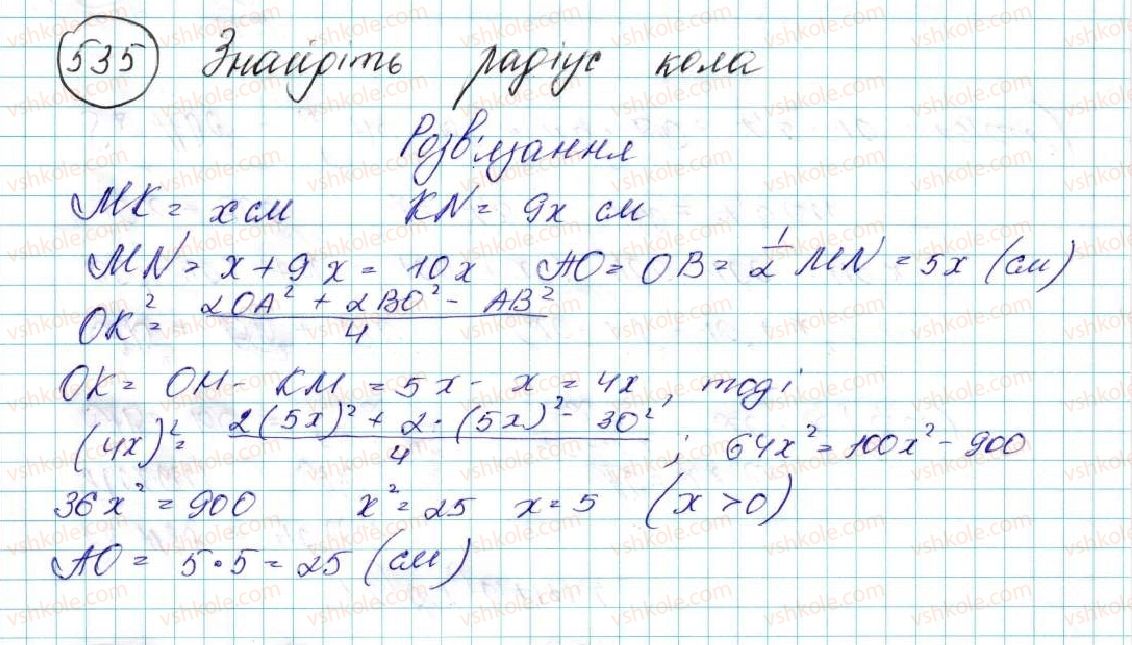 535 Знайдіть радіус кола
Розв'язання
MK = x см KN = 9x см
MN = x + 9x = 10x AO = OB = 1/2 MN = 5x (см)
OK² = (2OA² + 2BO² - AB²)/4
OK = OM - KM = 5x - x = 4x, тоді
(4x)² = (2(5x)² + 2·(5x)² - 30²)/4 ; 64x² = 100x² - 900
36x² = 900 x² = 25 x = 5 (x > 0)
AO = 5·5 = 25 (см)
vshkole.com